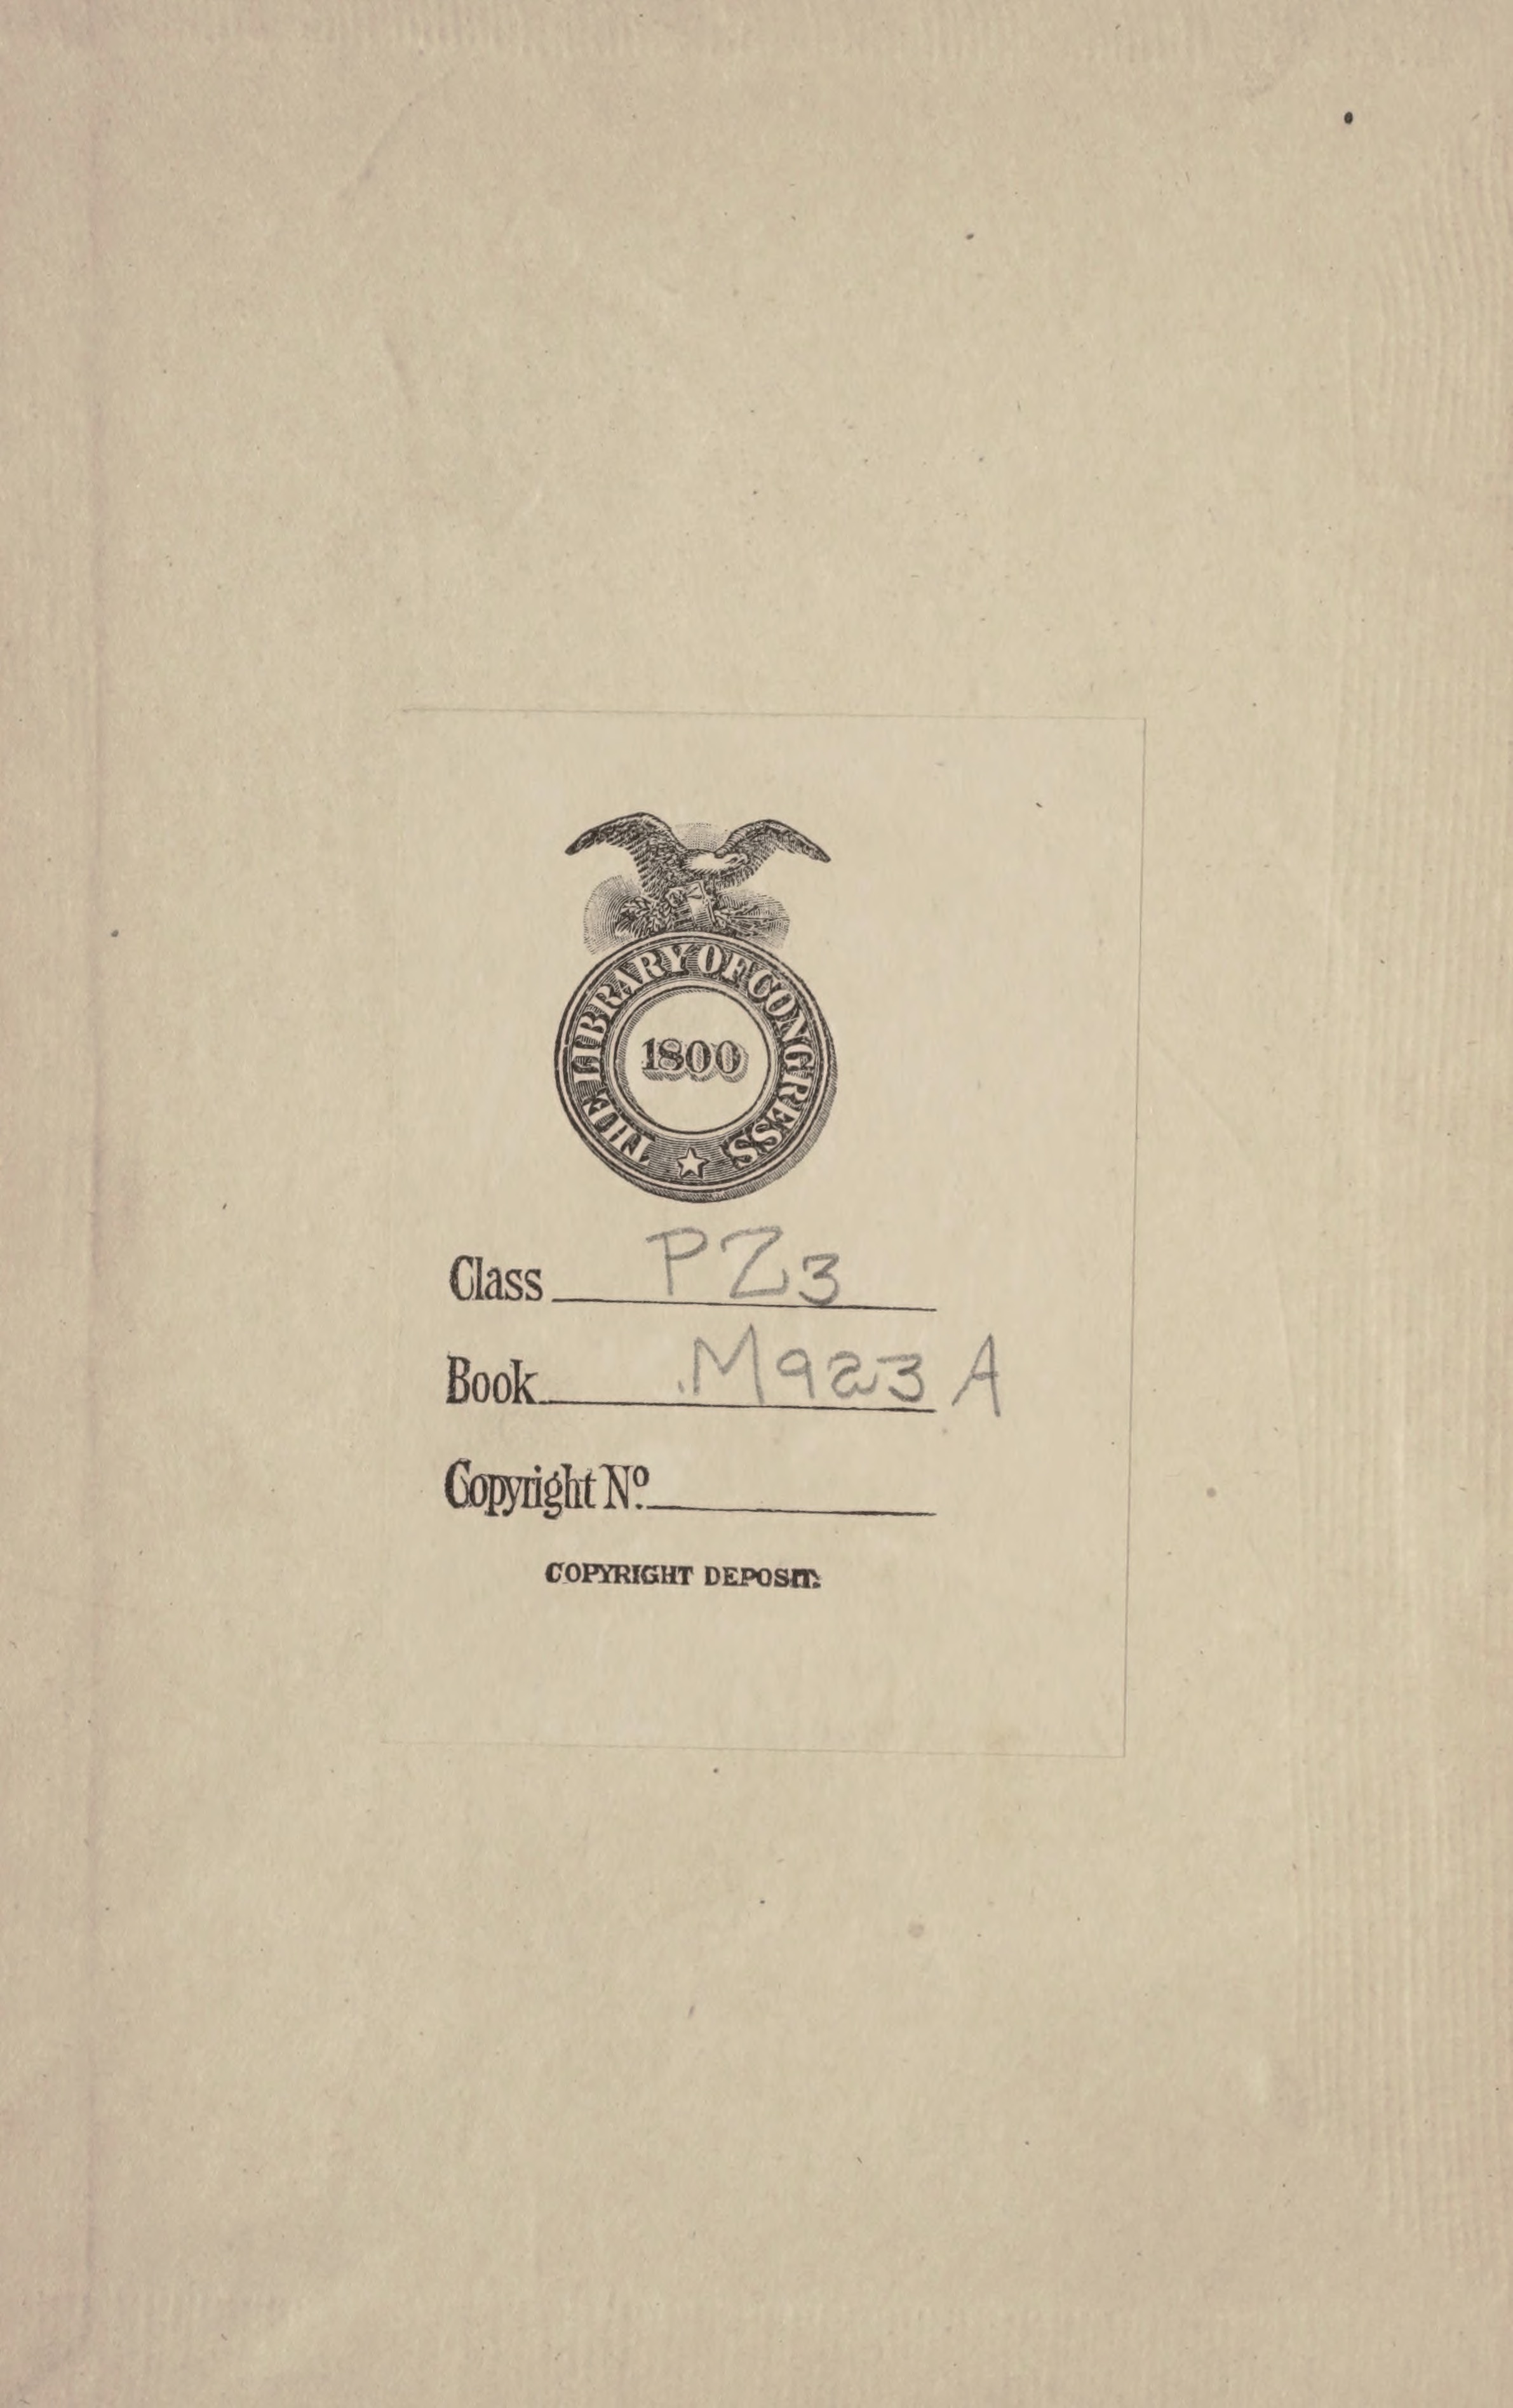 THE LIBRARY OF CONGRESS
1800
Class PZ3
Book .M923 A
Copyright Nº.
COPYRIGHT DEPOSIT.